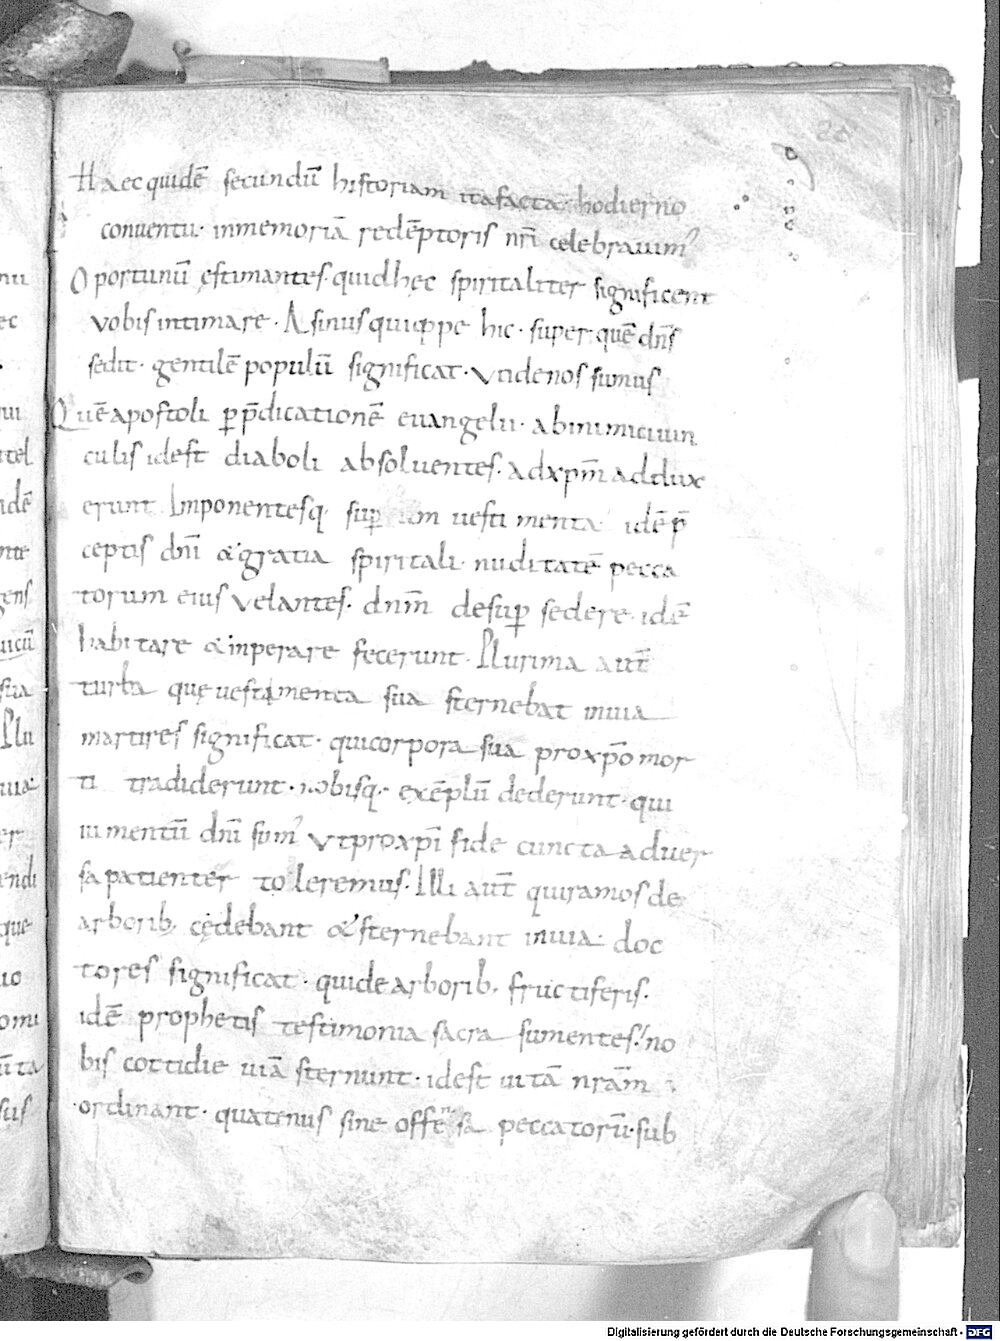 Haec quidē secundū historiam ita facta hodierno
conuentu · in memoriā redēptoris nr̄i celebrauim᾽
Oportunū ęstimantes · quid hęc spiritaliter significent
vobis intimare · Asinus quippe hic · super quē dn̄s
sedit · gentilē populū significat · vnde nos sumus
Quē apostoli ꝑ p̄dicationē euangelii · ab inimici uin
culis id est diaboli absoluentes · ad xp̄m addux
erunt Imponentesq· suꝑ uestimenta idē p̄
ceptis dn̄i & gratia spiritali · nuditatē pecca
torum eius velantes · dn̄m desuꝑ sedere · idē
habitare & inperare fecerunt · Plurima aut̄
turba que uestimenta sua sternebat in uia
martires significat · qui corpora sua pro xp̄o mor
ti tradiderunt · nobisq· exēplū dederunt · qui
iumentū dn̄i sum᾽ vt pro xp̄i fide cuncta aduer
sa patienter toleremus · Illi aut̄ qui ramos de
arborib· cędebant & sternebant in uia · doc
tores significat · qui de arborib· fructiferis ·
idē prophetis testimonia sacra sumentes · no
bis cottidie uiā sternunt · id est uitā nr̄am
ordinant · quatinus sine offensa peccatorū · sub
nu
ec
qui
tel
idē
nte
gens
uicū
sua
Plu
uia
er
endi
que
uo
omi
ūta
sus
Digitalisierung gefördert durch die Deutsche Forschungsgemeinschaft - DFG